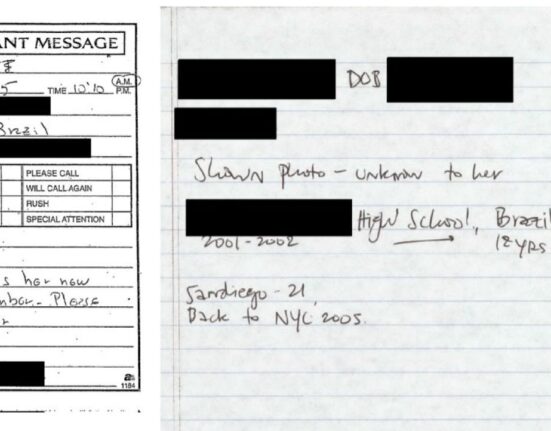 ANT MESSAGE
5 TIME 10:10 A.M. P.M.
Brazil
PLEASE CALL
WILL CALL AGAIN
RUSH
SPECIAL ATTENTION
s her new
mber - Please
r
1184
DOB
Shown photo - unknown to her
High School, Brazil
2001-2002 18 yrs
Sandiego - 21
Back to NYC 2005.